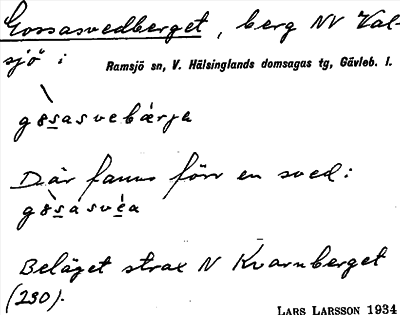 Gossasvedberget, berg NV Val-
sjö i
Ramsjö sn, V. Hälsinglands domsagas tg, Gävleb. l.
Där fanns förr en sved:
Beläget strax N Kvarnberget
(290).
LARS LARSSON 1934